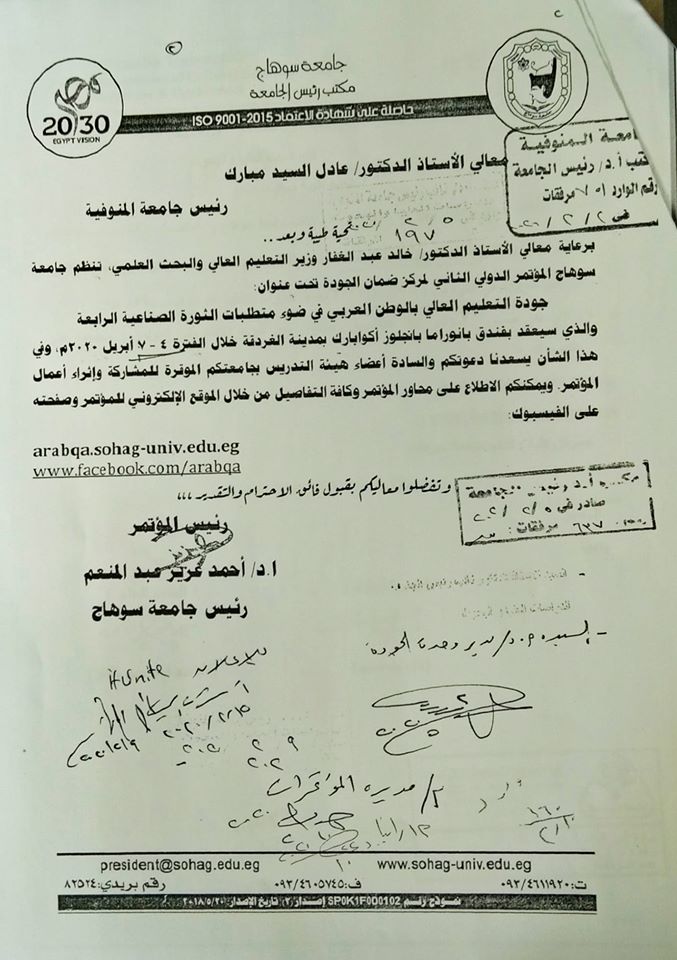 جامعة سوهاج
مكتب رئيس الجامعة
حاصلة على شهادة الاعتماد ISO 9001-2015
20/30
EGYPT VISION
جامعة المنوفية
مكتب أ.د/ رئيس الجامعة
رقم الوارد ٧٥١ مرفقات
فى ٢٠٢٠/٢/٢
معالي الأستاذ الدكتور/ عادل السيد مبارك
رئيس جامعة المنوفية
تحية طيبة وبعد...
١٩٧
برعاية معالي الأستاذ الدكتور/ خالد عبد الغفار وزير التعليم العالي والبحث العلمي، تنظم جامعة
سوهاج المؤتمر الدولي الثاني لمركز ضمان الجودة تحت عنوان:
جودة التعليم العالي بالوطن العربي في ضوء متطلبات الثورة الصناعية الرابعة
والذي سيعقد بفندق بانوراما بانجلوز أكوابارك بمدينة الغردقة خلال الفترة ٤ - ٧ أبريل ٢٠٢٠م، وفي
هذا الشأن يسعدنا دعوتكم والسادة أعضاء هيئة التدريس بجامعتكم الموقرة للمشاركة وإثراء أعمال
المؤتمر. ويمكنكم الاطلاع على محاور المؤتمر وكافة التفاصيل من خلال الموقع الإلكتروني للمؤتمر وصفحته
على الفيسبوك:
arabqa.sohag-univ.edu.eg
www.facebook.com/arabqa
وتفضلوا معاليكم بقبول فائق الاحترام والتقدير ،،،
صادر فى
٦٣٧ مرفقات:
رئيس المؤتمر
ا.د/ أحمد عزيز عبد المنعم
رئيس جامعة سوهاج
- السيده ا.د/ مدير وحدة الجودة
للإعلان
مديره المؤتمرات
president@sohag.edu.eg
www.sohag-univ.edu.eg
ت: ٠٩٣/٤٦١١٩٢٠
ف: ٠٩٣/٤٦٠٥٧٤٥
رقم بريدي: ٨٢٥٢٤
نموذج رقم SP0K1F0D0102 إصدار (٢) تاريخ الإصدار ٢٠١٨/٥/٢٠